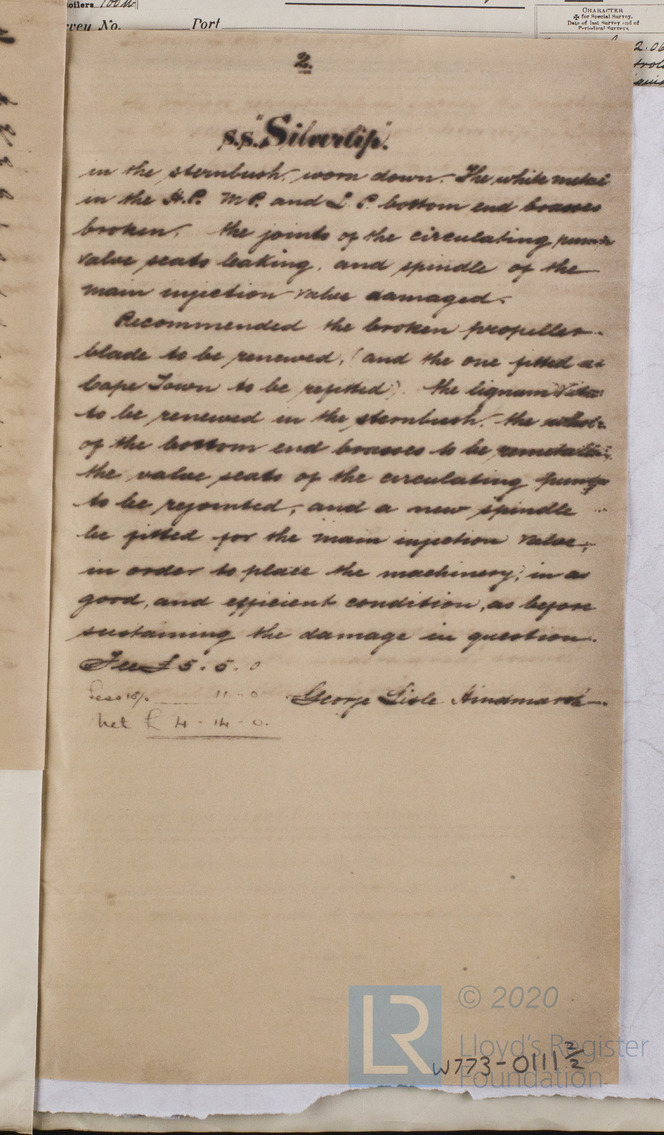 oilers 100 lb
rvey No. Port
CHARACTER
for Special Survey.
Date of last Survey and of
Periodical Surveys.
2.06
2.
S.S. "Silverlip".
in the sternbush, worn down. The white metal
in the H.P. M.P. and L.P. bottom end brasses
broken, the joints of the circulating pump
valve seats leaking, and spindle of the
main injection valve damaged.
Recommended the broken propeller
blade to be renewed, (and the one fitted at
Cape Town to be refitted). the lignum vitae
to be renewed in the sternbush, the whole
of the bottom end brasses to be remetalled
the valve seats of the circulating pump
to be rejointed, and a new spindle
be fitted for the main injection valve,
in order to place the machinery, in as
good, and efficient condition, as before
sustaining the damage in question.
Fee £5. 5. 0
Less 10% 11 - 0 George Lisle Hindmarsh
Net £ 4 - 14 - 0.
© 2020
LR
Lloyd's Register
Foundation
W773-0111 2/2